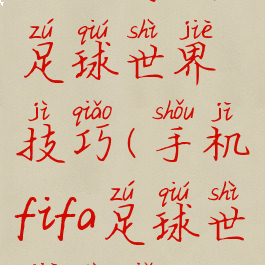 zú qiú shì jiè
足球世界
jì qiǎo shǒu jī
技巧(手机
zú qiú shì
fifa足球世